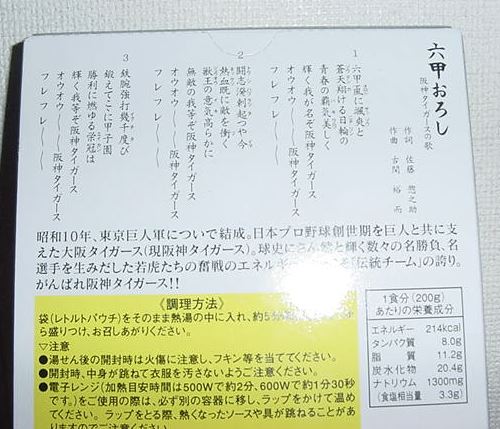 六甲おろし
阪神タイガースの歌
作詞 佐藤 惣之助
作曲 古関 裕而
1
六甲颪に颯爽と
蒼天翔ける日輪の
青春の覇気美しく
輝く我が名ぞ阪神タイガース
オウオウ――阪神タイガース
フレフレ――
2
闘志溌剌起つや今
熱血既に敵を衝く
獣王の意気高らかに
無敵の我等ぞ阪神タイガース
オウオウ――阪神タイガース
フレフレ――
3
鉄腕強打幾千度び
鍛えてここに甲子園
勝利に燃ゆる栄冠は
輝く我等ぞ阪神タイガース
オウオウ――阪神タイガース
フレフレ――
昭和10年、東京巨人軍についで結成。日本プロ野球創世期を巨人と共に支
えた大阪タイガース(現阪神タイガース)。球史にさん然と輝く数々の名勝負、名
選手を生みだした若虎たちの奮戦のエネルギー「伝統チーム」の誇り。
がんばれ阪神タイガース!!
《調理方法》
袋(レトルトパウチ)をそのまま熱湯の中に入れ、約5
盛りつけ、お召しあがりください。
▽注意
●湯せん後の開封時は火傷に注意し、フキン等を当ててください。
●開封時、中身が跳ねて衣服を汚さないようご注意ください。
●電子レンジ(加熱目安時間は500Wで約2分、600Wで約1分30秒
です。)をご使用の際は、必ず別の容器に移し、ラップをかけて温め
てください。ラップをとる際、熱くなったソースや具が跳ねることがあ
りますのでご注意ください
1食分(200g)
あたりの栄養成分
エネルギー 214kcal
タンパク質 8.0g
脂質 11.2g
炭水化物 20.4g
ナトリウム 1300mg
(食塩相当量 3.3g)